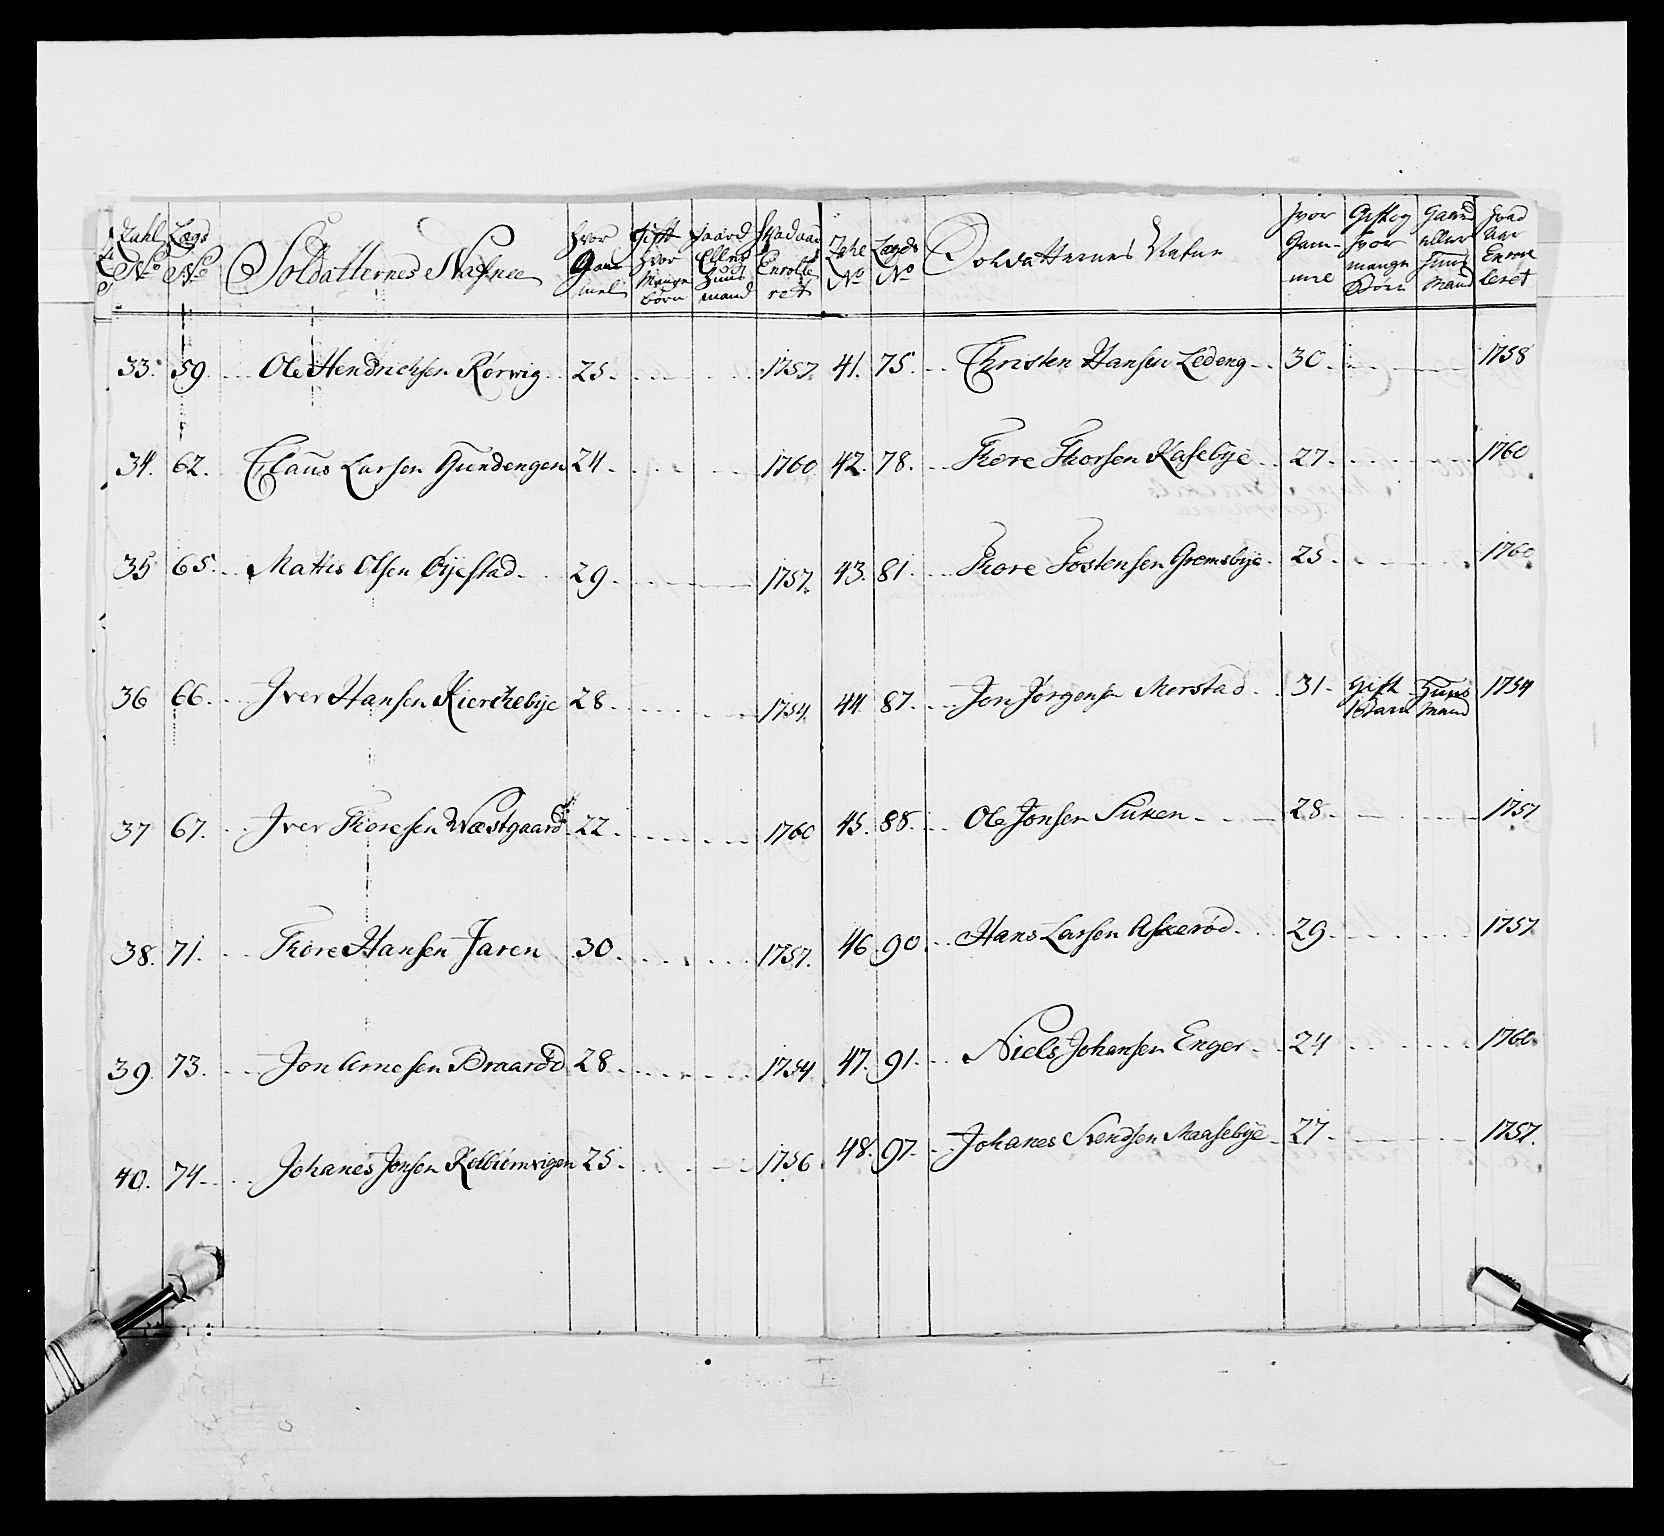 Zahl No | Lægs No | Soldatternes Nafne | Hvor Gammel | Gift hvor Mange børn | Gaard Eller Huusmand | Hvad aar Enrolleret
33. 59. Ole Hendrichsen Rørvig 25. 1757.
34. 62. Claus Larsen Gundengen 24. 1760
35 65. Mattis Olsen Øijestad 29. 1757.
36 66. Iver Hansen Kierchebÿe 28. 1754.
37 67. Iver Thoresen Wæstgaard 22. 1760
38. 71. Thore Hansen Jaren 30. 1757.
39. 73. Jon Arnesen Braardd 28. 1754.
40. 74. Johanes Jonsen Kolbiørnvigen 25. 1756
Zahl No | Lægds No | Soldatternes Nafne | Hvor Gammel | Gift og hvor mange Børn | Gaard eller Huus Mand | Hvad Aar Enroulleret
41. 75. Christen Hansen Ledeng 30. 1758
42. 78. Thore Thorsen Kasebÿe 27. 1760
43. 81. Thore Tostensen Gremsbÿe 25. 1760
44. 87. Jon Jørgensen Morstad 31. Gift 1 Barn Huus Mand 1754
45. 88. Ole Jonsen Suxen 28. 1757
46. 90. Hans Larsen Askerød 29. 1757.
47. 91. Niels Johansen Enger 24 1760.
48. 97. Johanes Svendsen Maasebÿe 27. 1757.